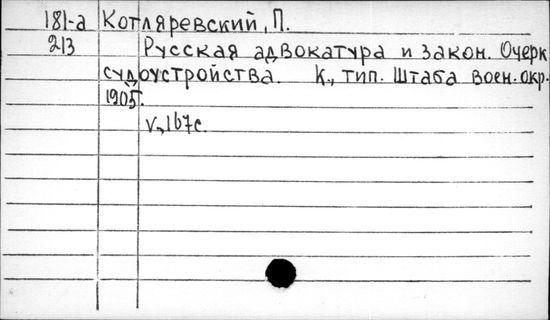 181-а Котляревский, П.
213 Русская адвокатура и закон. Очерк
судоустройства. К., тип. Штаба воен. окр.
1905г.
V, 167с.